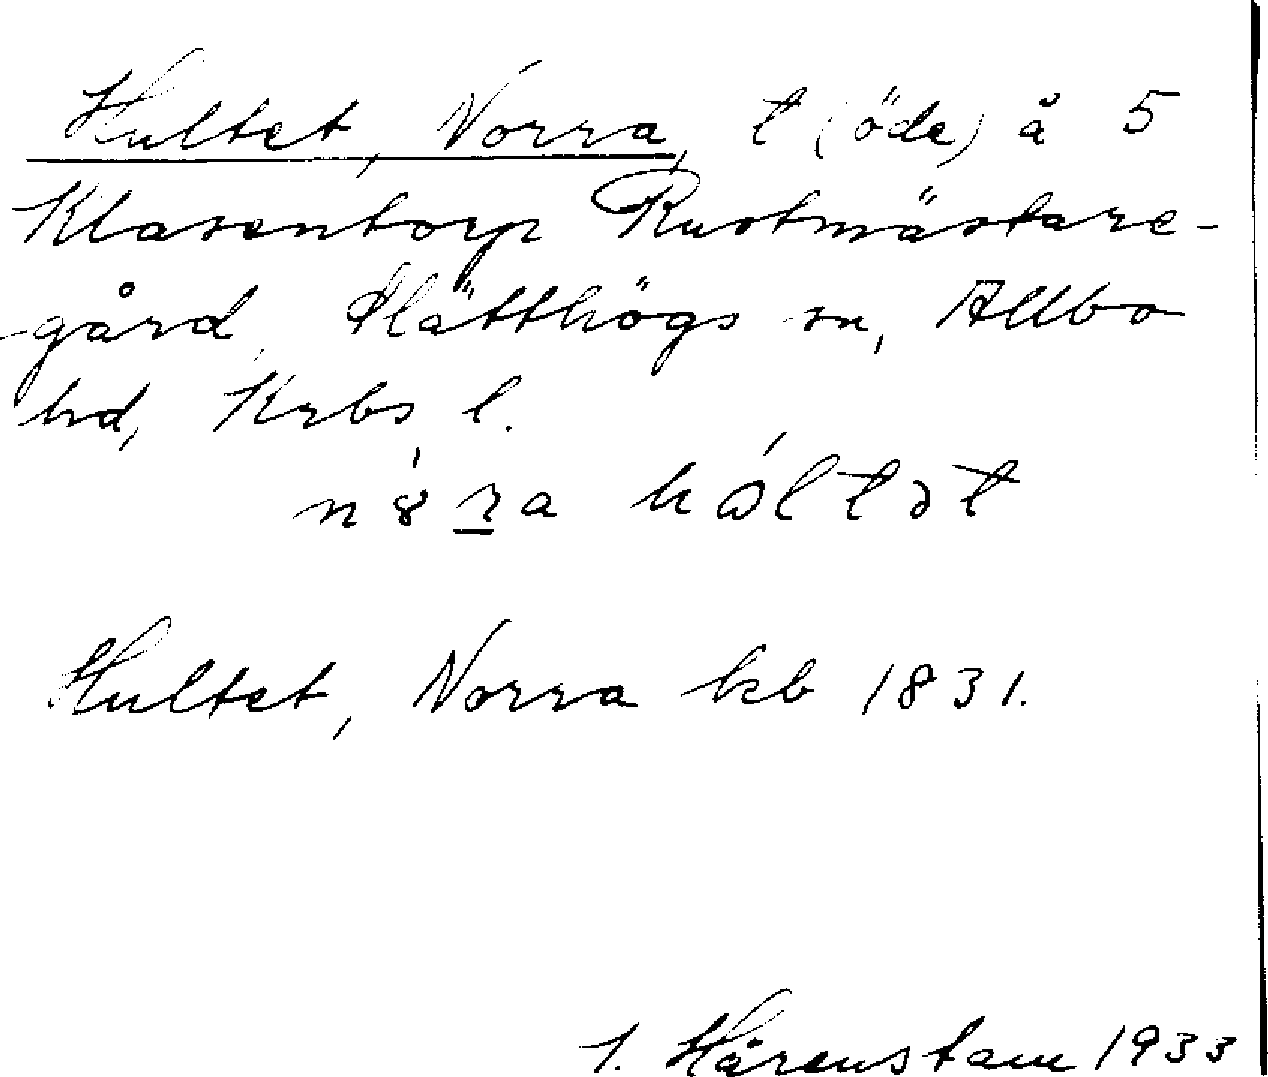 Hultet, Norra, t (öde) å 5
Klasentorp Rustmästare-
gård, Slätthögs sn, Allbo
hd, Krbs l.
Hultet, Norra kb 1831.
I. Härenstam 1933